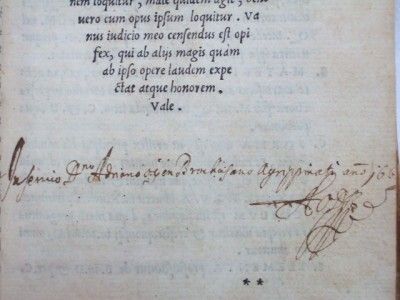 tem loquitur, male quidem agit, bene
vero cum opus ipsum loquitur. Va
nus iudicio meo censendus est opi
fex, qui ab alijs magis quam
ab ipso opere laudem expe
ctat atque honorem.
Vale.
Inservio Dno Adriano Agrippinati anno
**